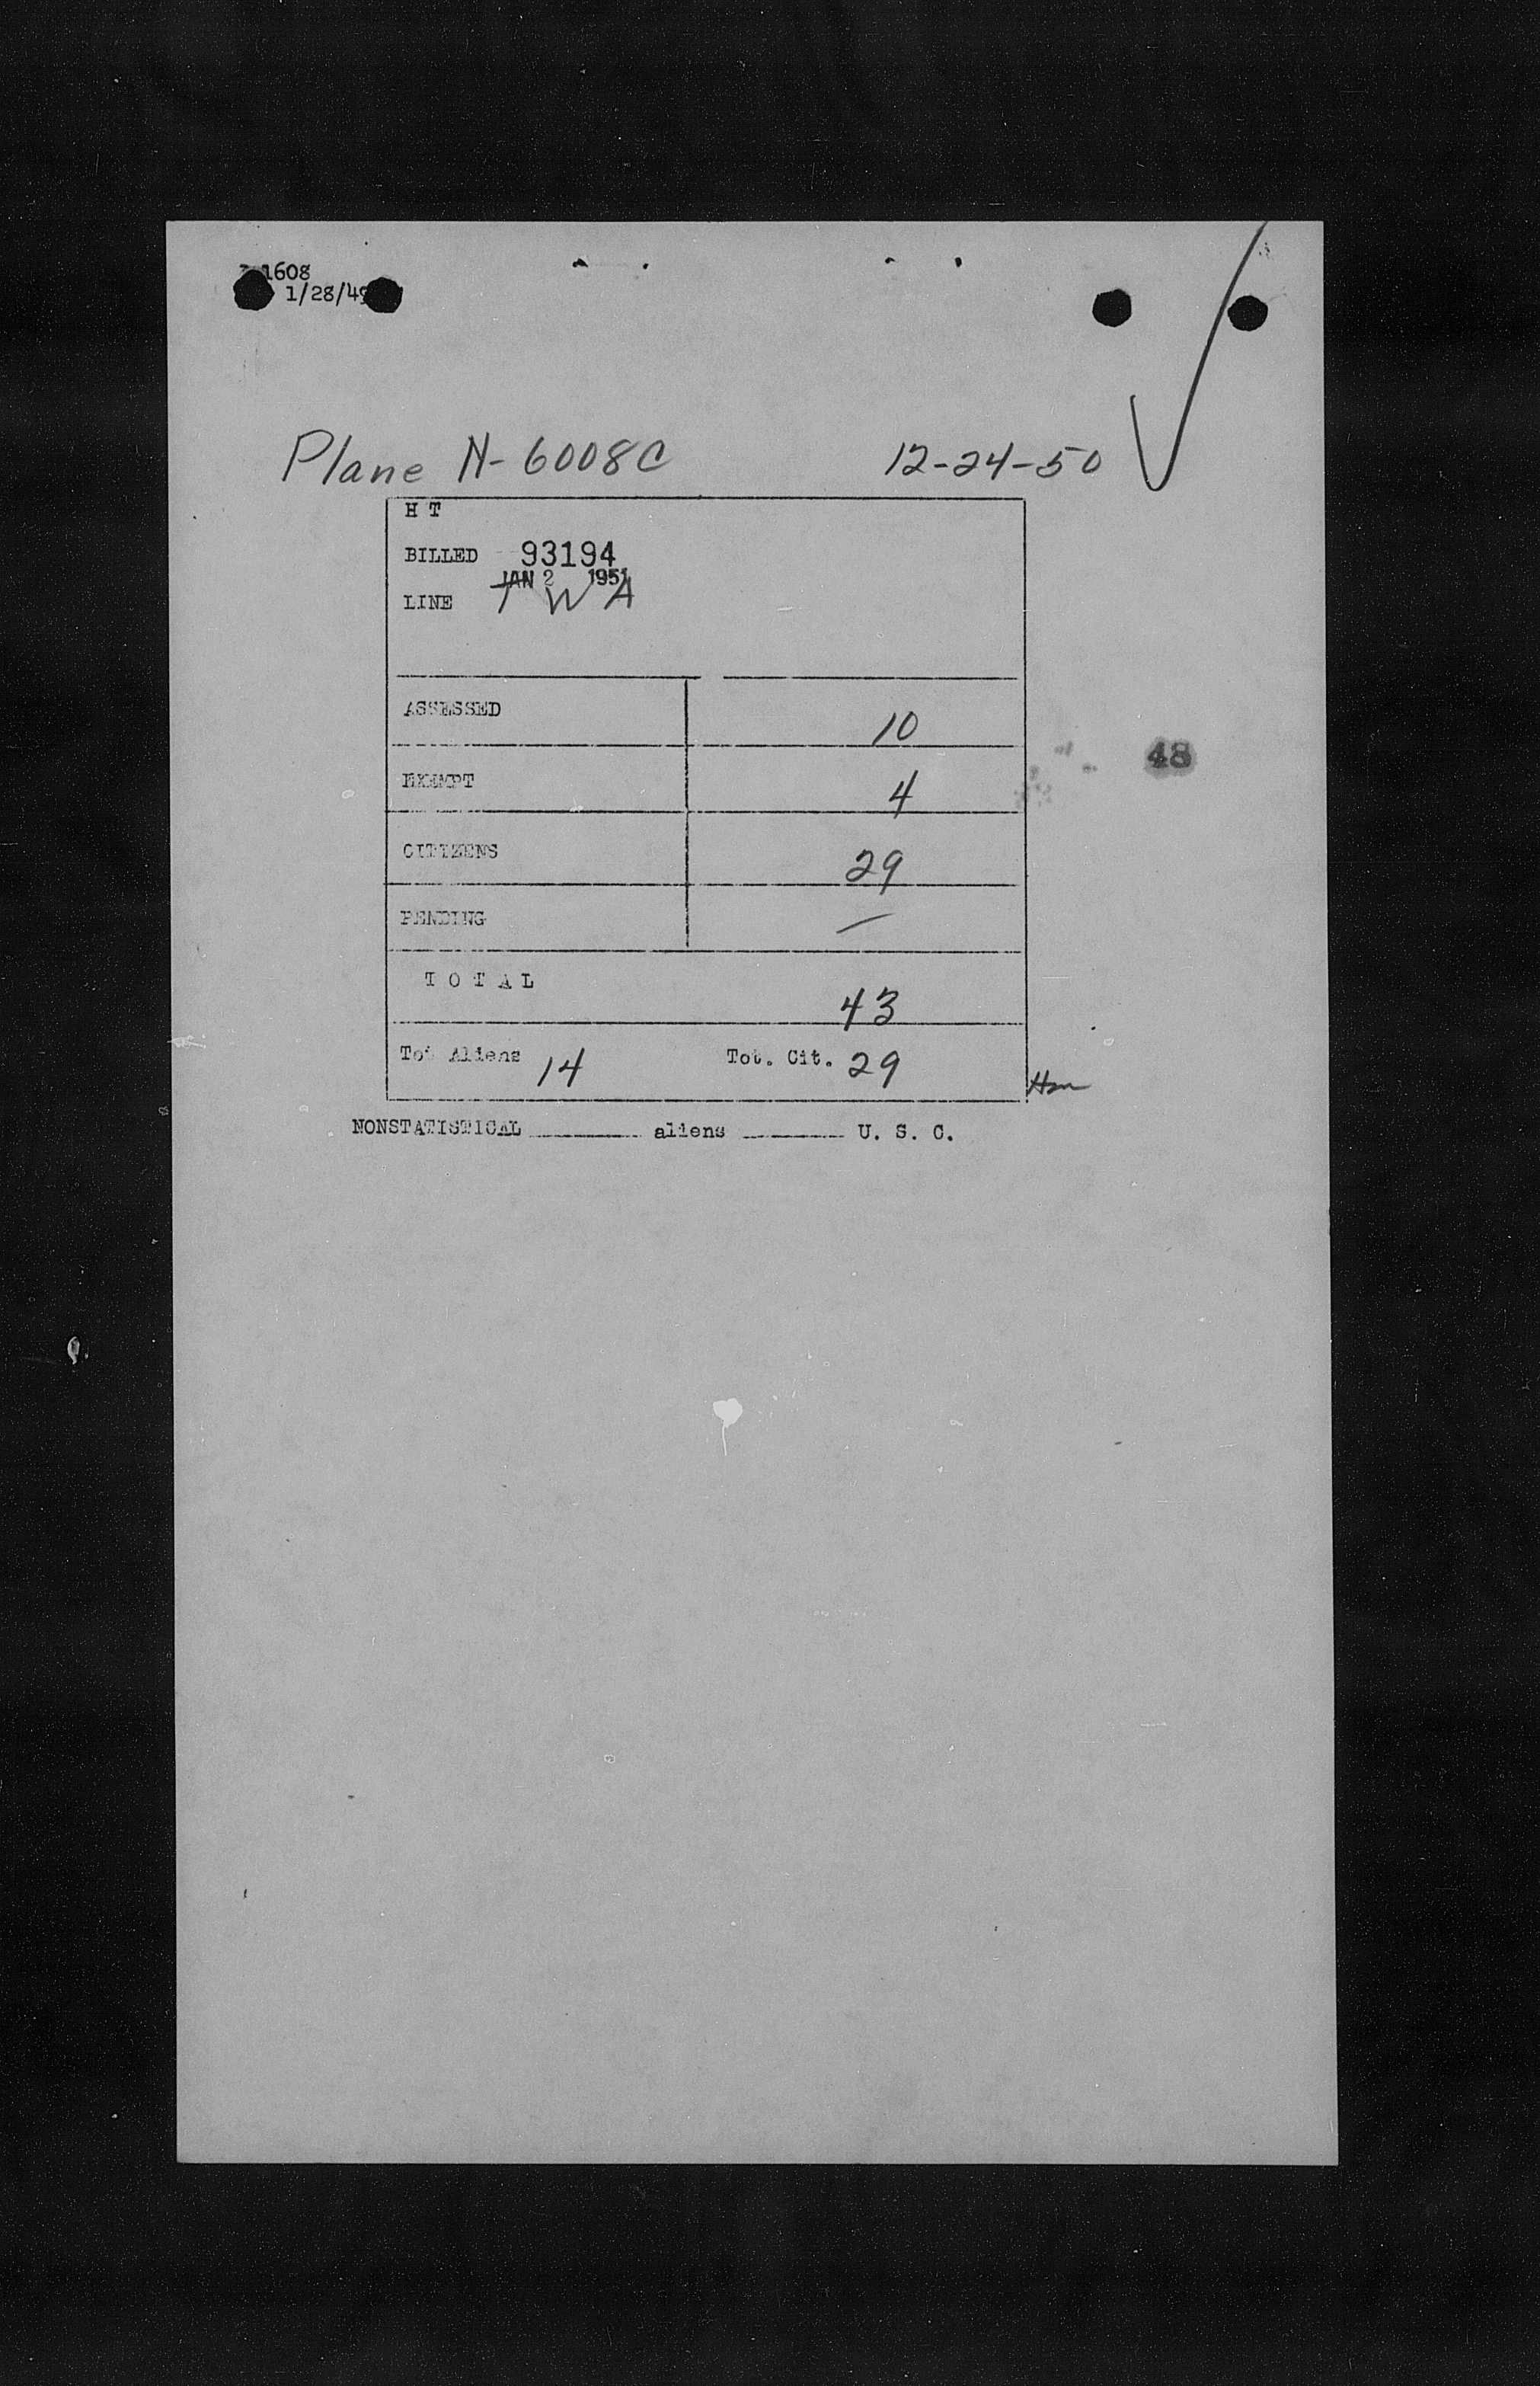 1608
1/28/49
Plane N-6008C 12-24-50
H T
BILLED 93194
JAN 2 1951
LINE T W A
ASSESSED 10
EXEMPT 4
CITIZENS 29
PENDING —
T O T A L 43
Tot Aliens 14 Tot. Cit. 29
NONSTATISTICAL ________ aliens ________ U. S. C.
48